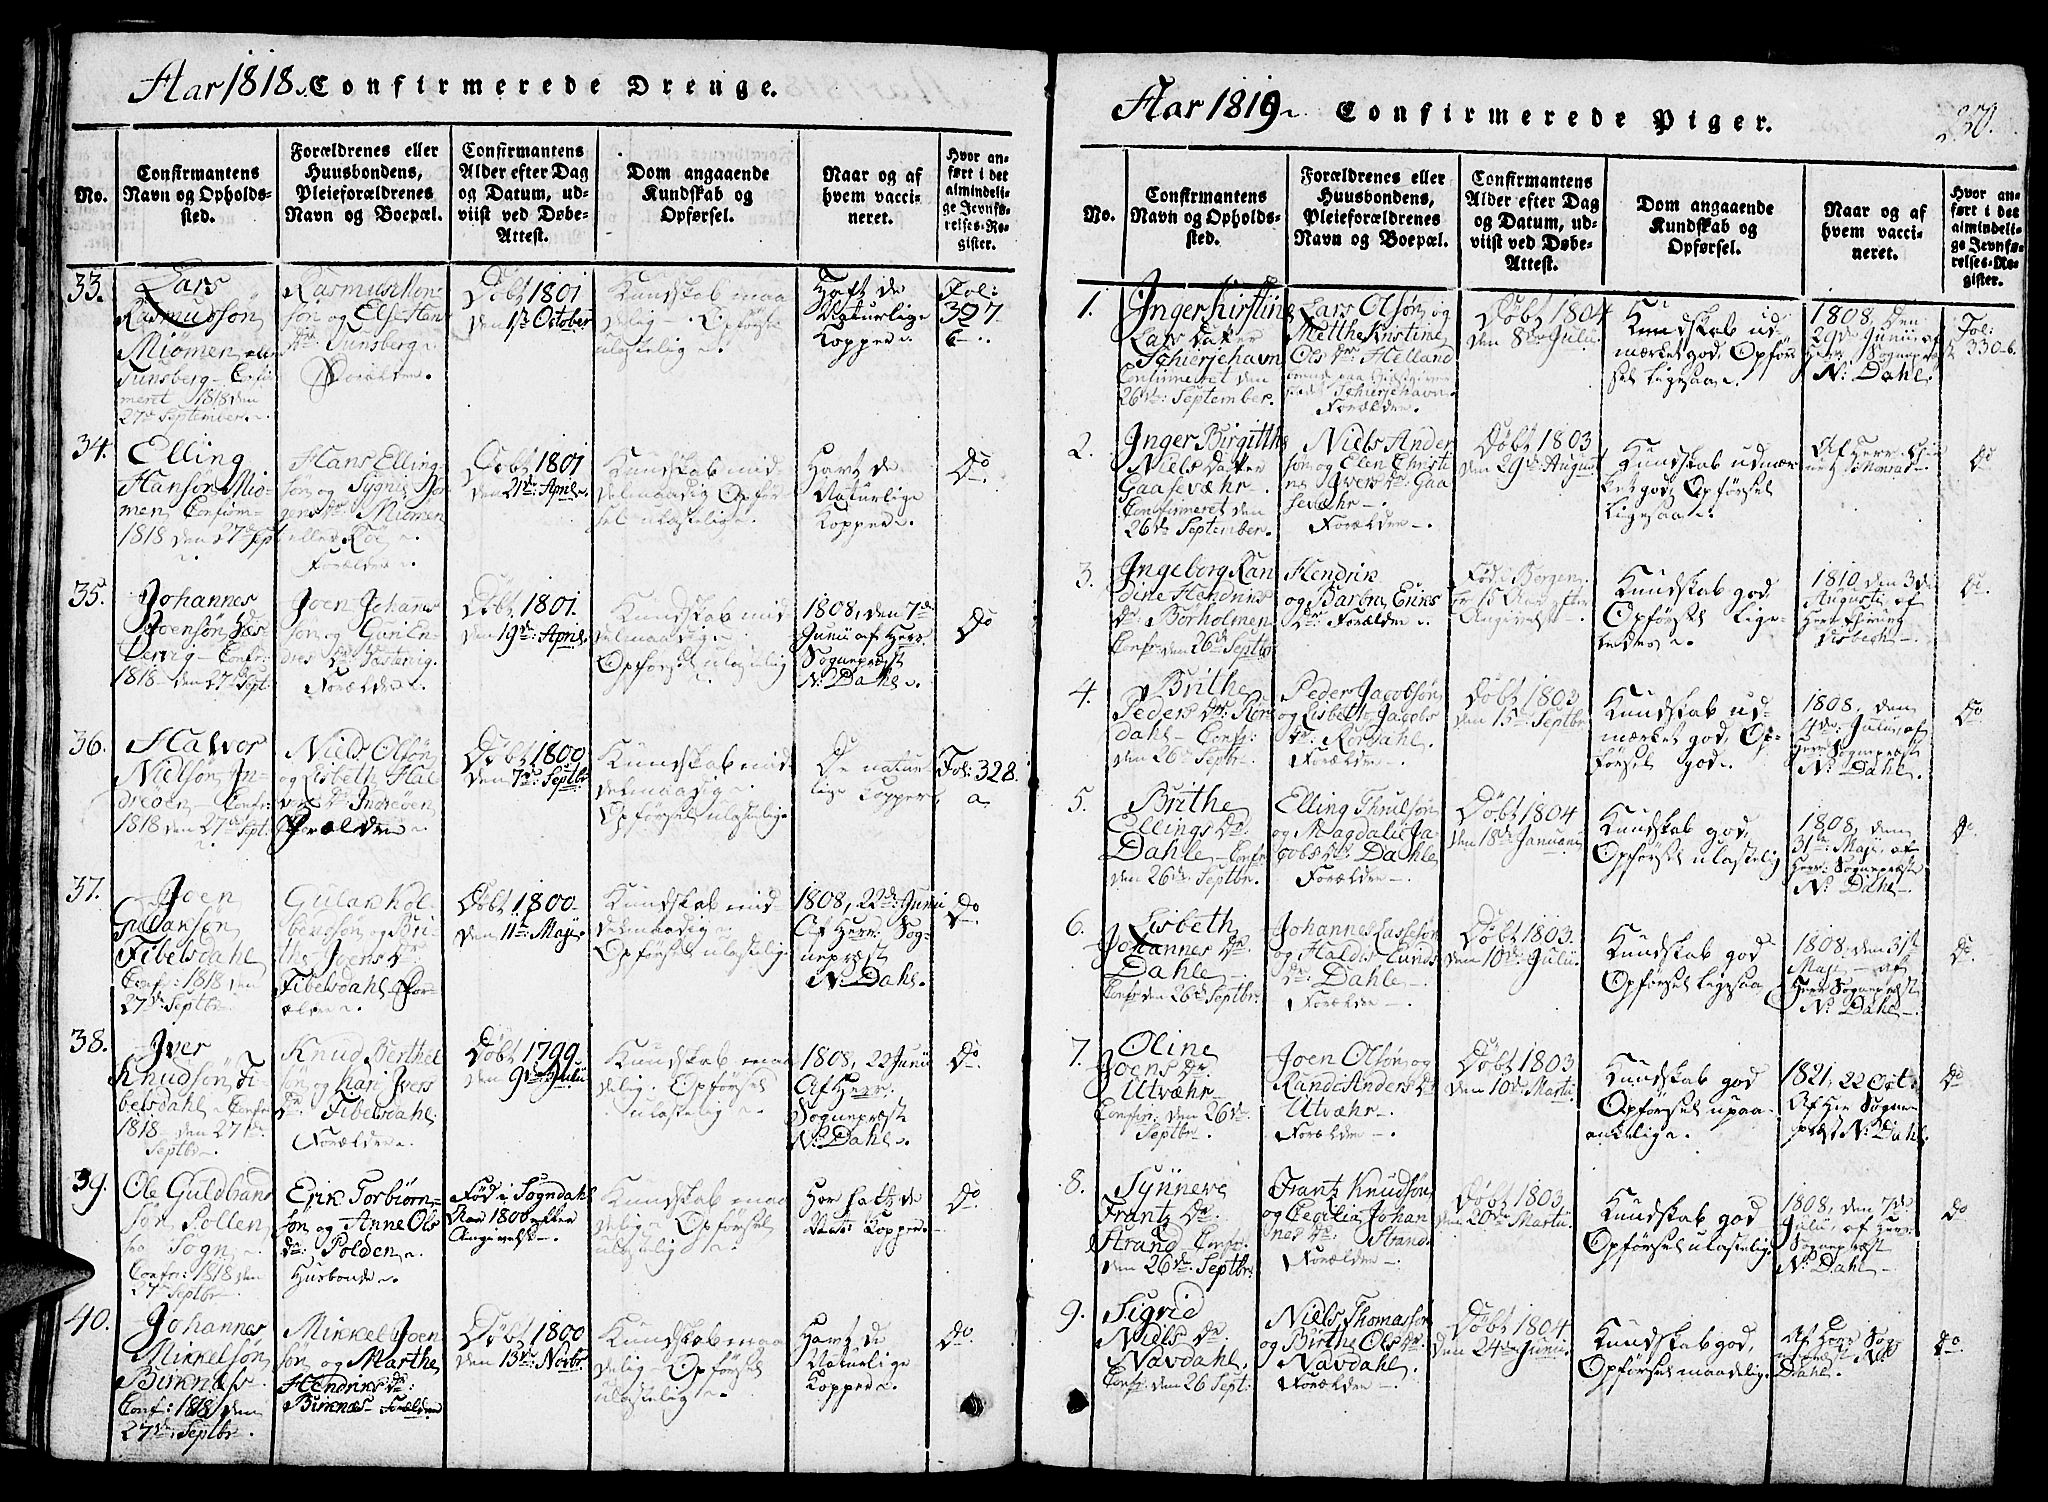 Aar 1818. Confirmerede Drenge.
No.
Confirmantens
Navn og Opholds-
sted.
Forældrenes eller
Huusbondens,
Pleieforældrenes
Navn og Boepæl.
Confirmantens
Alder efter Dag
og Datum, ud-
viist ved Døbe-
Attest.
Dom angaaende
Kundskab og
Opførsel.
Naar og af
hvem vacci-
neret.
Hvor an-
ført i det
almindeli-
ge Jevnfø-
relses-Re-
gister.
33.
Lars
Rasmussøn
Miömen eller
Tunsberg - Confir
meret 1818 den
27de September.
Rasmus
søn og
Tunsberg
Forældre.
Døbt 1801
den 1ste October
Kundskab maa
delig - Opførsel
ulastelig.
Haft de
Naturlige
Kopper.
Fol:
327
b.
34.
Elling
Hansøn Miö-
men, Confirm-
1818 den 27de Sept
Hans Elling-
søn og
Miömen
eller
Forældre.
Døbt 1801
den 21de April.
Kundskab mid-
delmaadig Opfør
sel ulastelig.
Havt de
Naturlige
Kopper.
Do
35.
Johannes
Joensøn
Confir:
1818 den 27de Sept:
Joen Johans
søn og Guri En-
dres Dr
Forældre.
Døbt 1801.
den 19de April.
Kundskab mid
delmaadig.
Opførsel ulastelig
1808, den 7de
Junii af Herr
Sognepræst
N: Dahl.
Do
36.
Halvor
Nielsøn, In-
dreøen - Confr:
1818 den 27de Sept:
Niels Olsøn
og Lisbeth Hal
vors Dr Indreøen
Forældre.
Døbt 1800
den 7de Septbr
Kundskab mid-
delmaadig.
Opførsel ulastelig
De natur
lige Kopper
Fol: 328.
a.
37.
Joen
Gullaksøn
Fibelsdahl
Confr: 1818 den
27de Septbr
Gulak Kol
bensøn og Bri-
the Joens Dr
Fibelsdahl For-
ældre.
Døbt 1800
den 11te Maji.
Kundskab mid-
delmaadig.
Opførsel ulastelig.
1808, 22de Junii
Af Herr Sog-
nepræst
N: Dahl.
Do
38.
Iver
Knudsøn Fi-
belsdahl Confr:
1818 den 27de
Septbr
Knud Berthel
søn og Kari Ivers
Dr Fibelsdahl:
Forældre.
Døbt 1799
den 9de Julii
Kundskab maa
delig. Opførsel
ulastelig.
1808, 22 Junii
Af Herr
Sognepræst
N: Dahl.
Do
39.
Ole Guldbrans
søn Pollen
fra Sogn
Confr: 1818 den
27de Septbr
Erik Torbiørn-
søn og Anne Ols
dr: Polden
Husbonde.
Fød i Sogndahl
Aar 1800 efter
Angivelse.
Kundskab maa
delig Opførsel
ulastelig.
Har haft de
Nat: Kopper.
Do
40.
Johannes
Mikkelsøn
Birknæs
Confr: 1818 den
27de Septbr
Mikkel Joen
søn og Marthe
Hendriks dr:
Birknæs Forældre
Døbt 1800
den 13de Novbr.
Kundskab maa
delig - Opførsel
ulastelig.
Havt de
Naturlige
Kopper.
Do
Aar 1819 Confirmerede Piger.
230.
No.
Confirmantens
Navn og Opholds-
sted.
Forældrenes eller
Huusbondens,
Pleieforældrenes
Navn og Boepæl.
Confirmantens
Alder efter Dag
og Datum, ud-
viist ved Døbe-
Attest.
Dom angaaende
Kundskab og
Opførsel.
Naar og af
hvem vacci-
neret.
Hvor an-
ført i det
almindeli-
ge Jevnfø-
relses-Re-
gister.
1.
Inger Kirstine
Lars Datter
Schierjehavn
Confirmeret den
26de September.
Lars Olsøn og
Metthe Kirstine
Ols dr Helland
Schierjehavn
Forældre.
Døbt 1804
den 8de Julii
Kundskab ud-
mærket god, Opfør
sel ligesaa.
1808, den
29de Junii af
Herr Sognepræst
N: Dahl.
Fol:
330 b.
2.
Inger Birgitthe
Niels Datter
Gaasevæhr -
Confirmeret den
26de September.
Niels Ander
søn og Elen Christi
ne Ivers Dr Gaa
sevæhr -
Forældre -.
Døbt 1803
den 29de August
Kundskab udmær
ket god, Opførsel
ligesaa.
Af Herr
Monrad.
Do
3.
Ingeborg Kan
dine Hendriks
dr: Börholmen
Confr: den 26de Septbr
Hendrik
og Barbra Eriks
Dr: Forældre
Fød i Bergen
er 15 Aar efter
Angivelse.
Kundskab god
Opførsel lige-
ledes.
1810 den 3de
Augusti af
Herr
Lisbech.
Do
4.
Brithe
Peders Dr: Rör
dahl - Confr:
den 26de Septbr.
Peder Jacobsøn
og Lisbeth Jacobs
dr. Rördahl.
Forældre -.
Døbt 1803
den 15de Septbr
Kundskab ud-
mærket god, Op-
førsel god.
1808, den
4de Julii, af
Herr Sognepræst
N: Dahl.
Do
5.
Brithe
Ellings Dr.
Dahle - Confr
den 26de Septbr.
Elling Thrulsøn
og Magdali Ja
cobs dr Dahle
Forældre -.
Døbt 1804
den 18de Januarii
Kundskab god,
Opførsel ulastelig
1808, den
31te Maji, af
Herr Sognepræst
N: Dahl
Do
6.
Lisbeth
Johannes Dr
Dahle -
Confr den 26de Septbr.
Johannes Lassesøn
og Haldis Eunds
dr: Dahle -.
Forældre -
Døbt 1803.
den 10de Julii.
Kundskab god
Opførsel ligesaa
1808, den 31te
Maji - af
Herr Sognepræst
N: Dahl -.
Do
7.
Oline
Joens Dr.
Utvæhr -
Confr: den 26de
Septbr.
Joen Olsøn og
Randi Anders Dr
Utvæhr -.
Forældre -.
Døbt 1803
den 10de Martii.
Kundskab god
Opførsel upaa-
ankelig.
1821, 22 Oct:
Af Herr Sogne-
præst N: Dahl
Do
8.
Synneve
Frantz Dr.
Strand Confr:
den 26de Septbr.
Frantz Knudsøn
og Cecilia Johan
nes dr: Strand.
Forældre -.
Døbt 1803
den 20de Martii.
Kundskab god
Opførsel ulastelig.
1808, den 7de
Julii, af Herr
Sognepræst
N: Dahl -
Do
9.
Sigrid
Niels Dr.
Navdahl.
Confr: den 26 Sept:
Niels Thomassøn
og Birthe Ols dr:
Navdahl.
Forældre -.
Døbt 1804.
den 24de Junii.
Kundskab god,
Opførsel maadelig.
Af Herr Sog
nepræst Nils
Dahl.
Do.